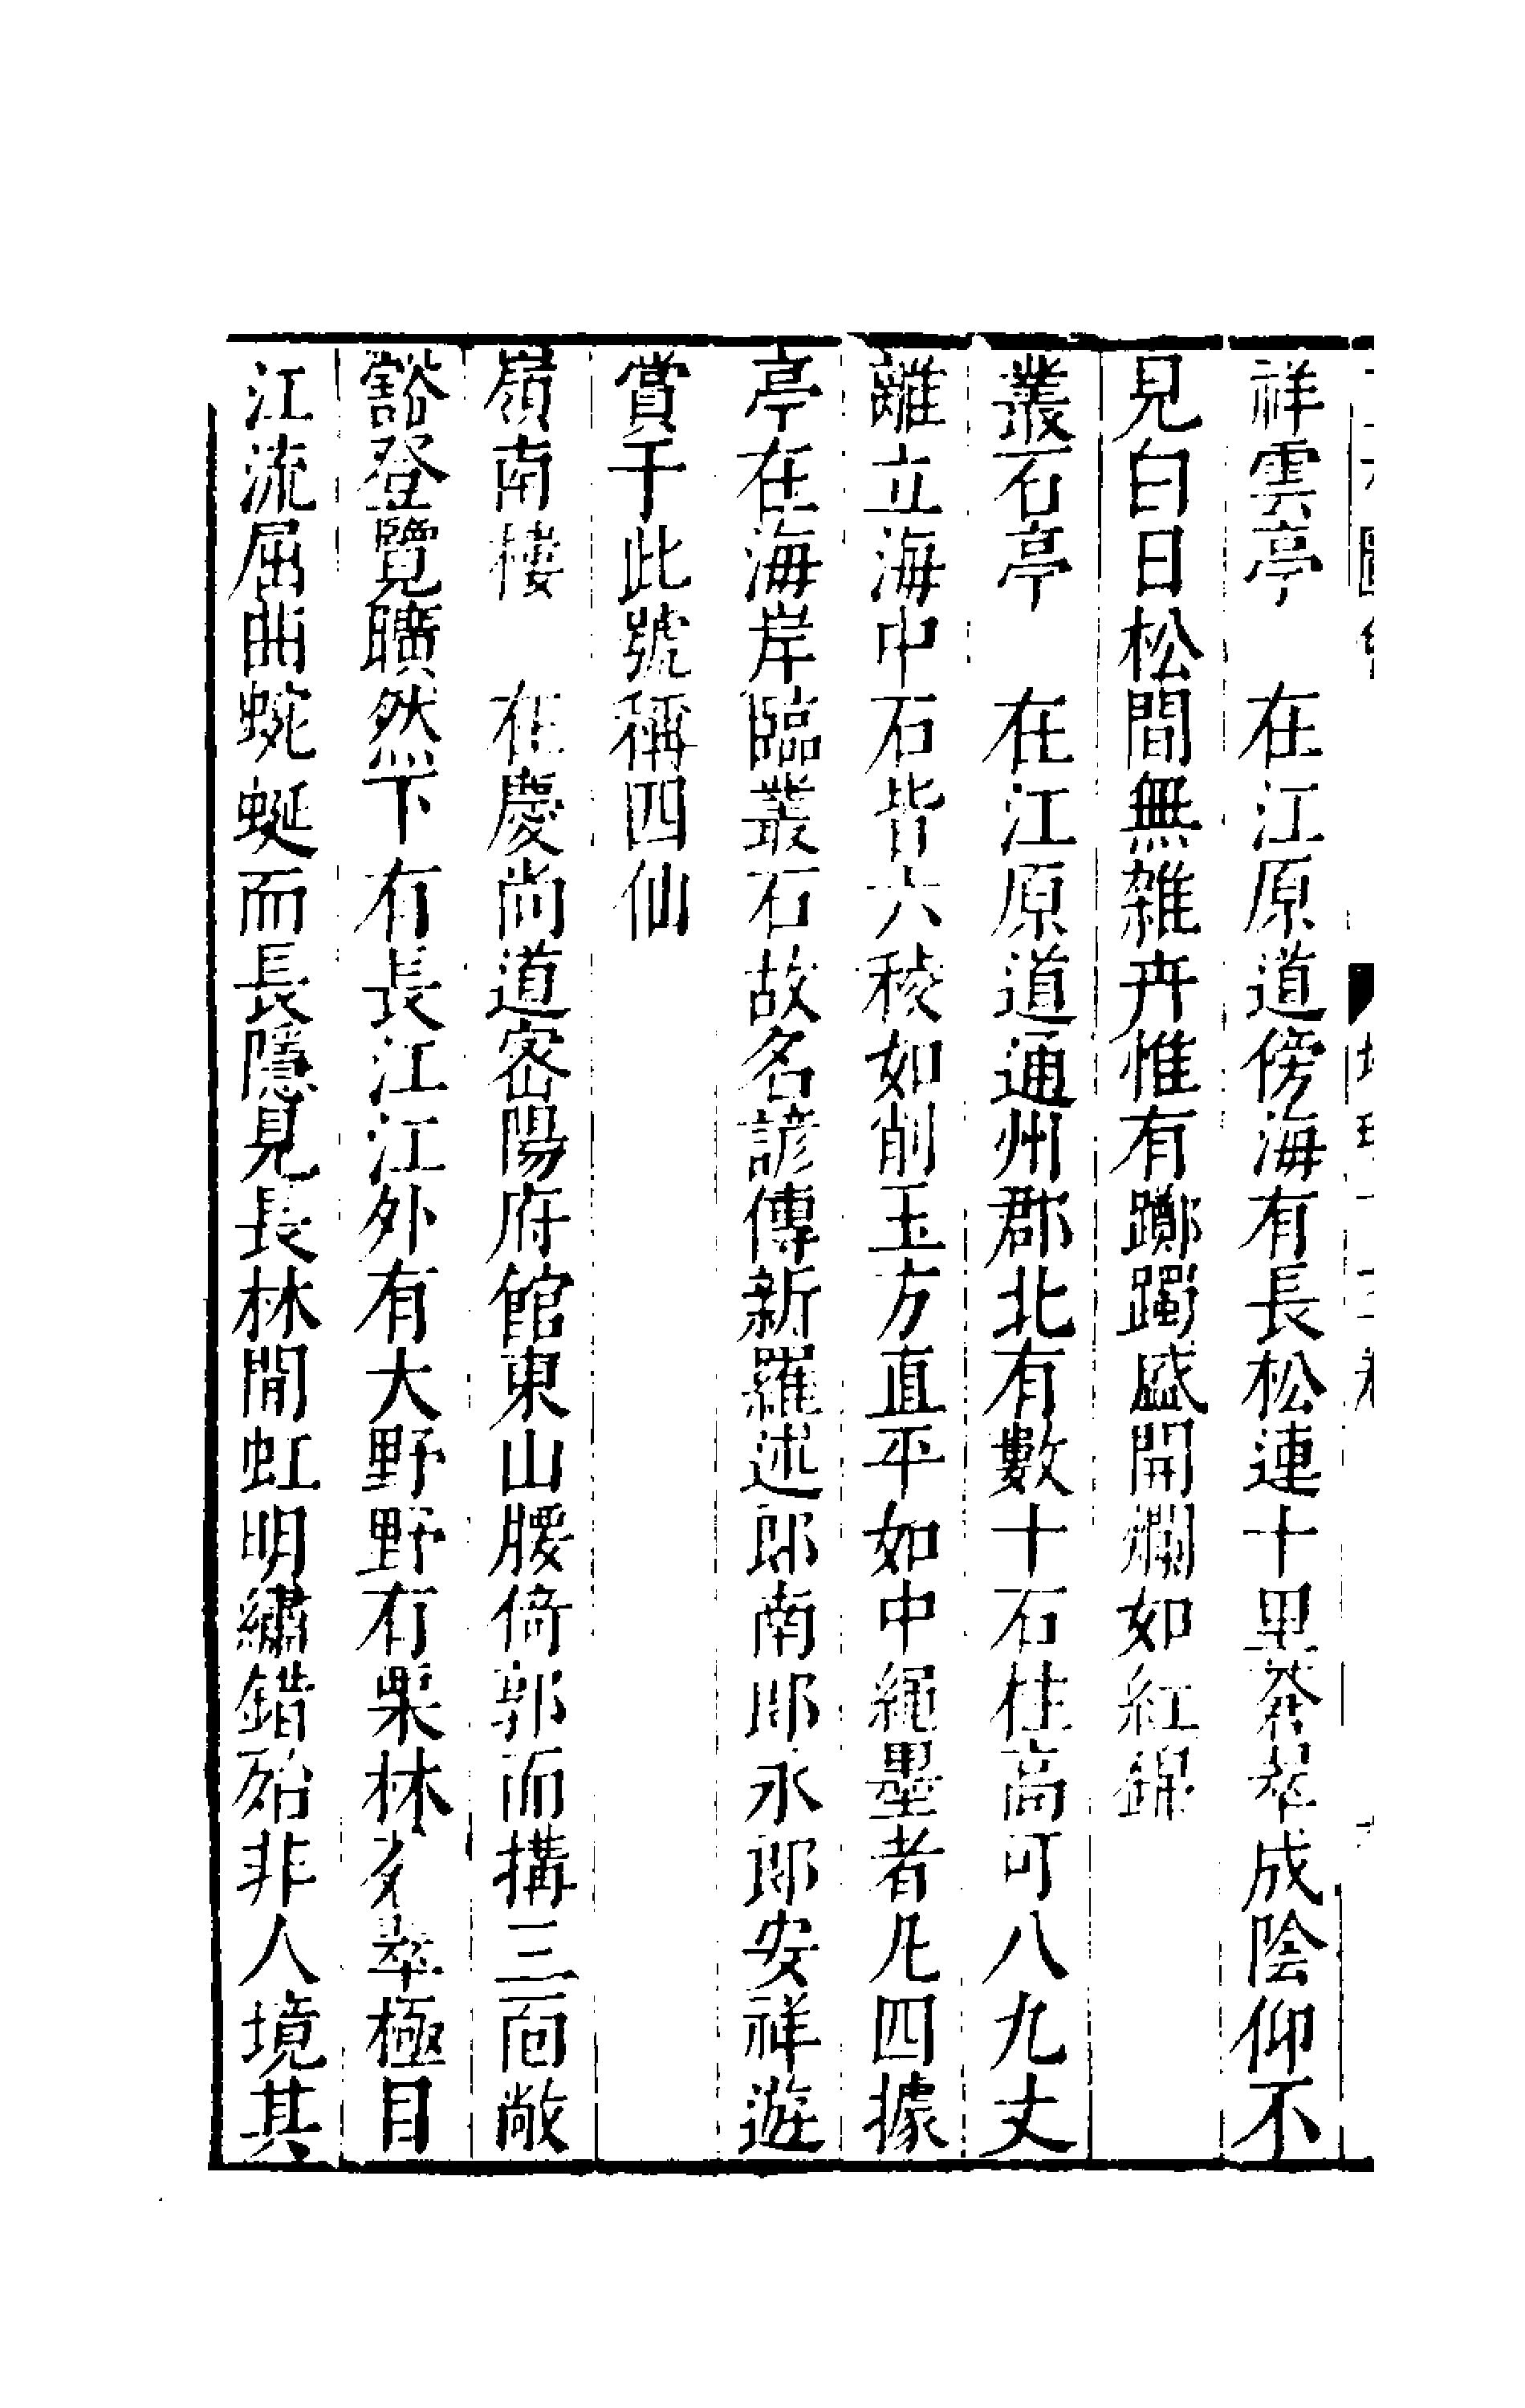 祥雲亭　在江原道傍海有長松連十里蒼翠成陰仰不
見白日松間無雜卉惟有躑躅盛開爛如紅錦
叢石亭　在江原道通州郡北有數十石柱高可八九丈
離立海中石皆六稜如削玉方直平如中繩墨者凡四據
亭在海岸臨叢石故名諺傳新羅述郎南郎永郎安祥遊
賞于此號稱四仙
嶺南樓　在慶尚道密陽府館東山腰倚郭而搆三面敞
豁登覽曠然下有長江江外有大野野有栗林翠極目
江流屈曲蜿蜒而長隱見長林間虹明繡錯殆非人境其